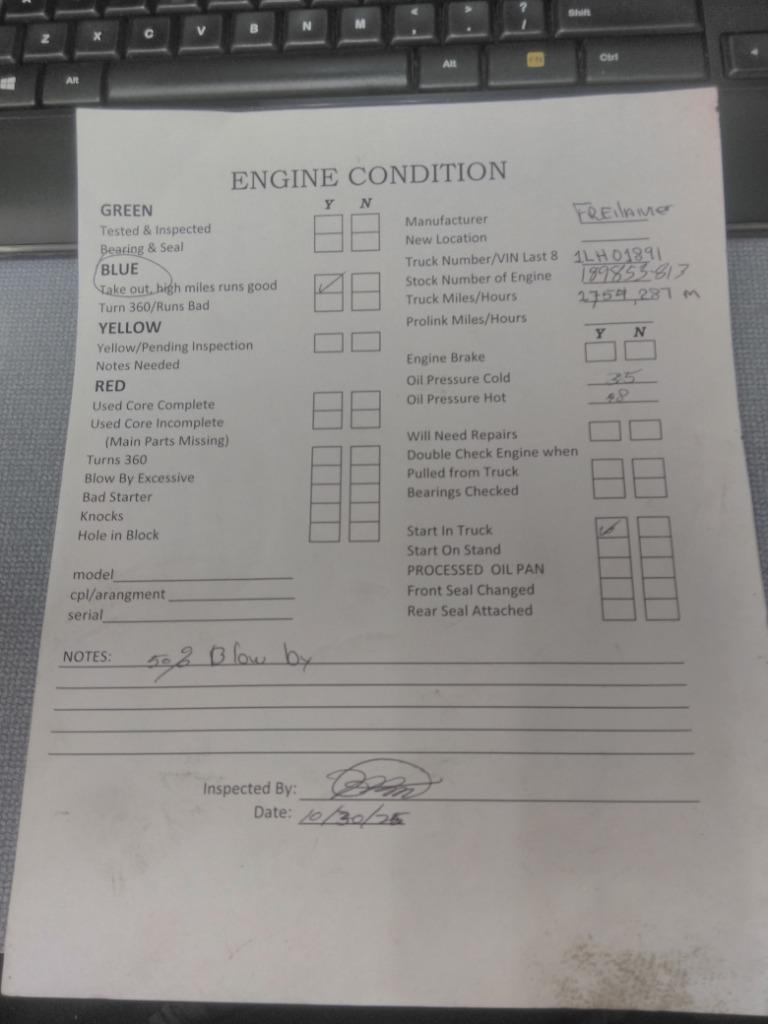 Z X C V B N M < , > . ? / Shift
Alt Alt FN Ctrl
ENGINE CONDITION
Y N
GREEN
Tested & Inspected
Bearing & Seal
BLUE
Take out, high miles runs good
Turn 360/Runs Bad
YELLOW
Yellow/Pending Inspection
Notes Needed
RED
Used Core Complete
Used Core Incomplete
(Main Parts Missing)
Turns 360
Blow By Excessive
Bad Starter
Knocks
Hole in Block
model
cpl/arangment
serial
Manufacturer
New Location
Truck Number/VIN Last 8 1LH01891
Stock Number of Engine
Truck Miles/Hours
Prolink Miles/Hours
Y N
Engine Brake
Oil Pressure Cold 35
Oil Pressure Hot
Will Need Repairs
Double Check Engine when
Pulled from Truck
Bearings Checked
Start In Truck
Start On Stand
PROCESSED OIL PAN
Front Seal Changed
Rear Seal Attached
NOTES: 50% Blow by
Inspected By:
Date: 10/30/25